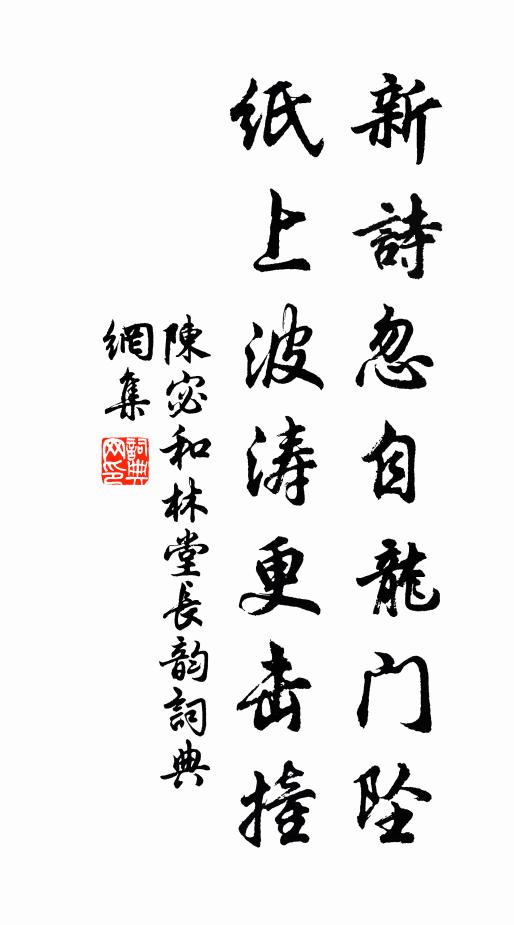 新詩忽自龍门坠
纸上波涛更击撞
陳宓和林堂長韵詞典
網集
詞典
网印